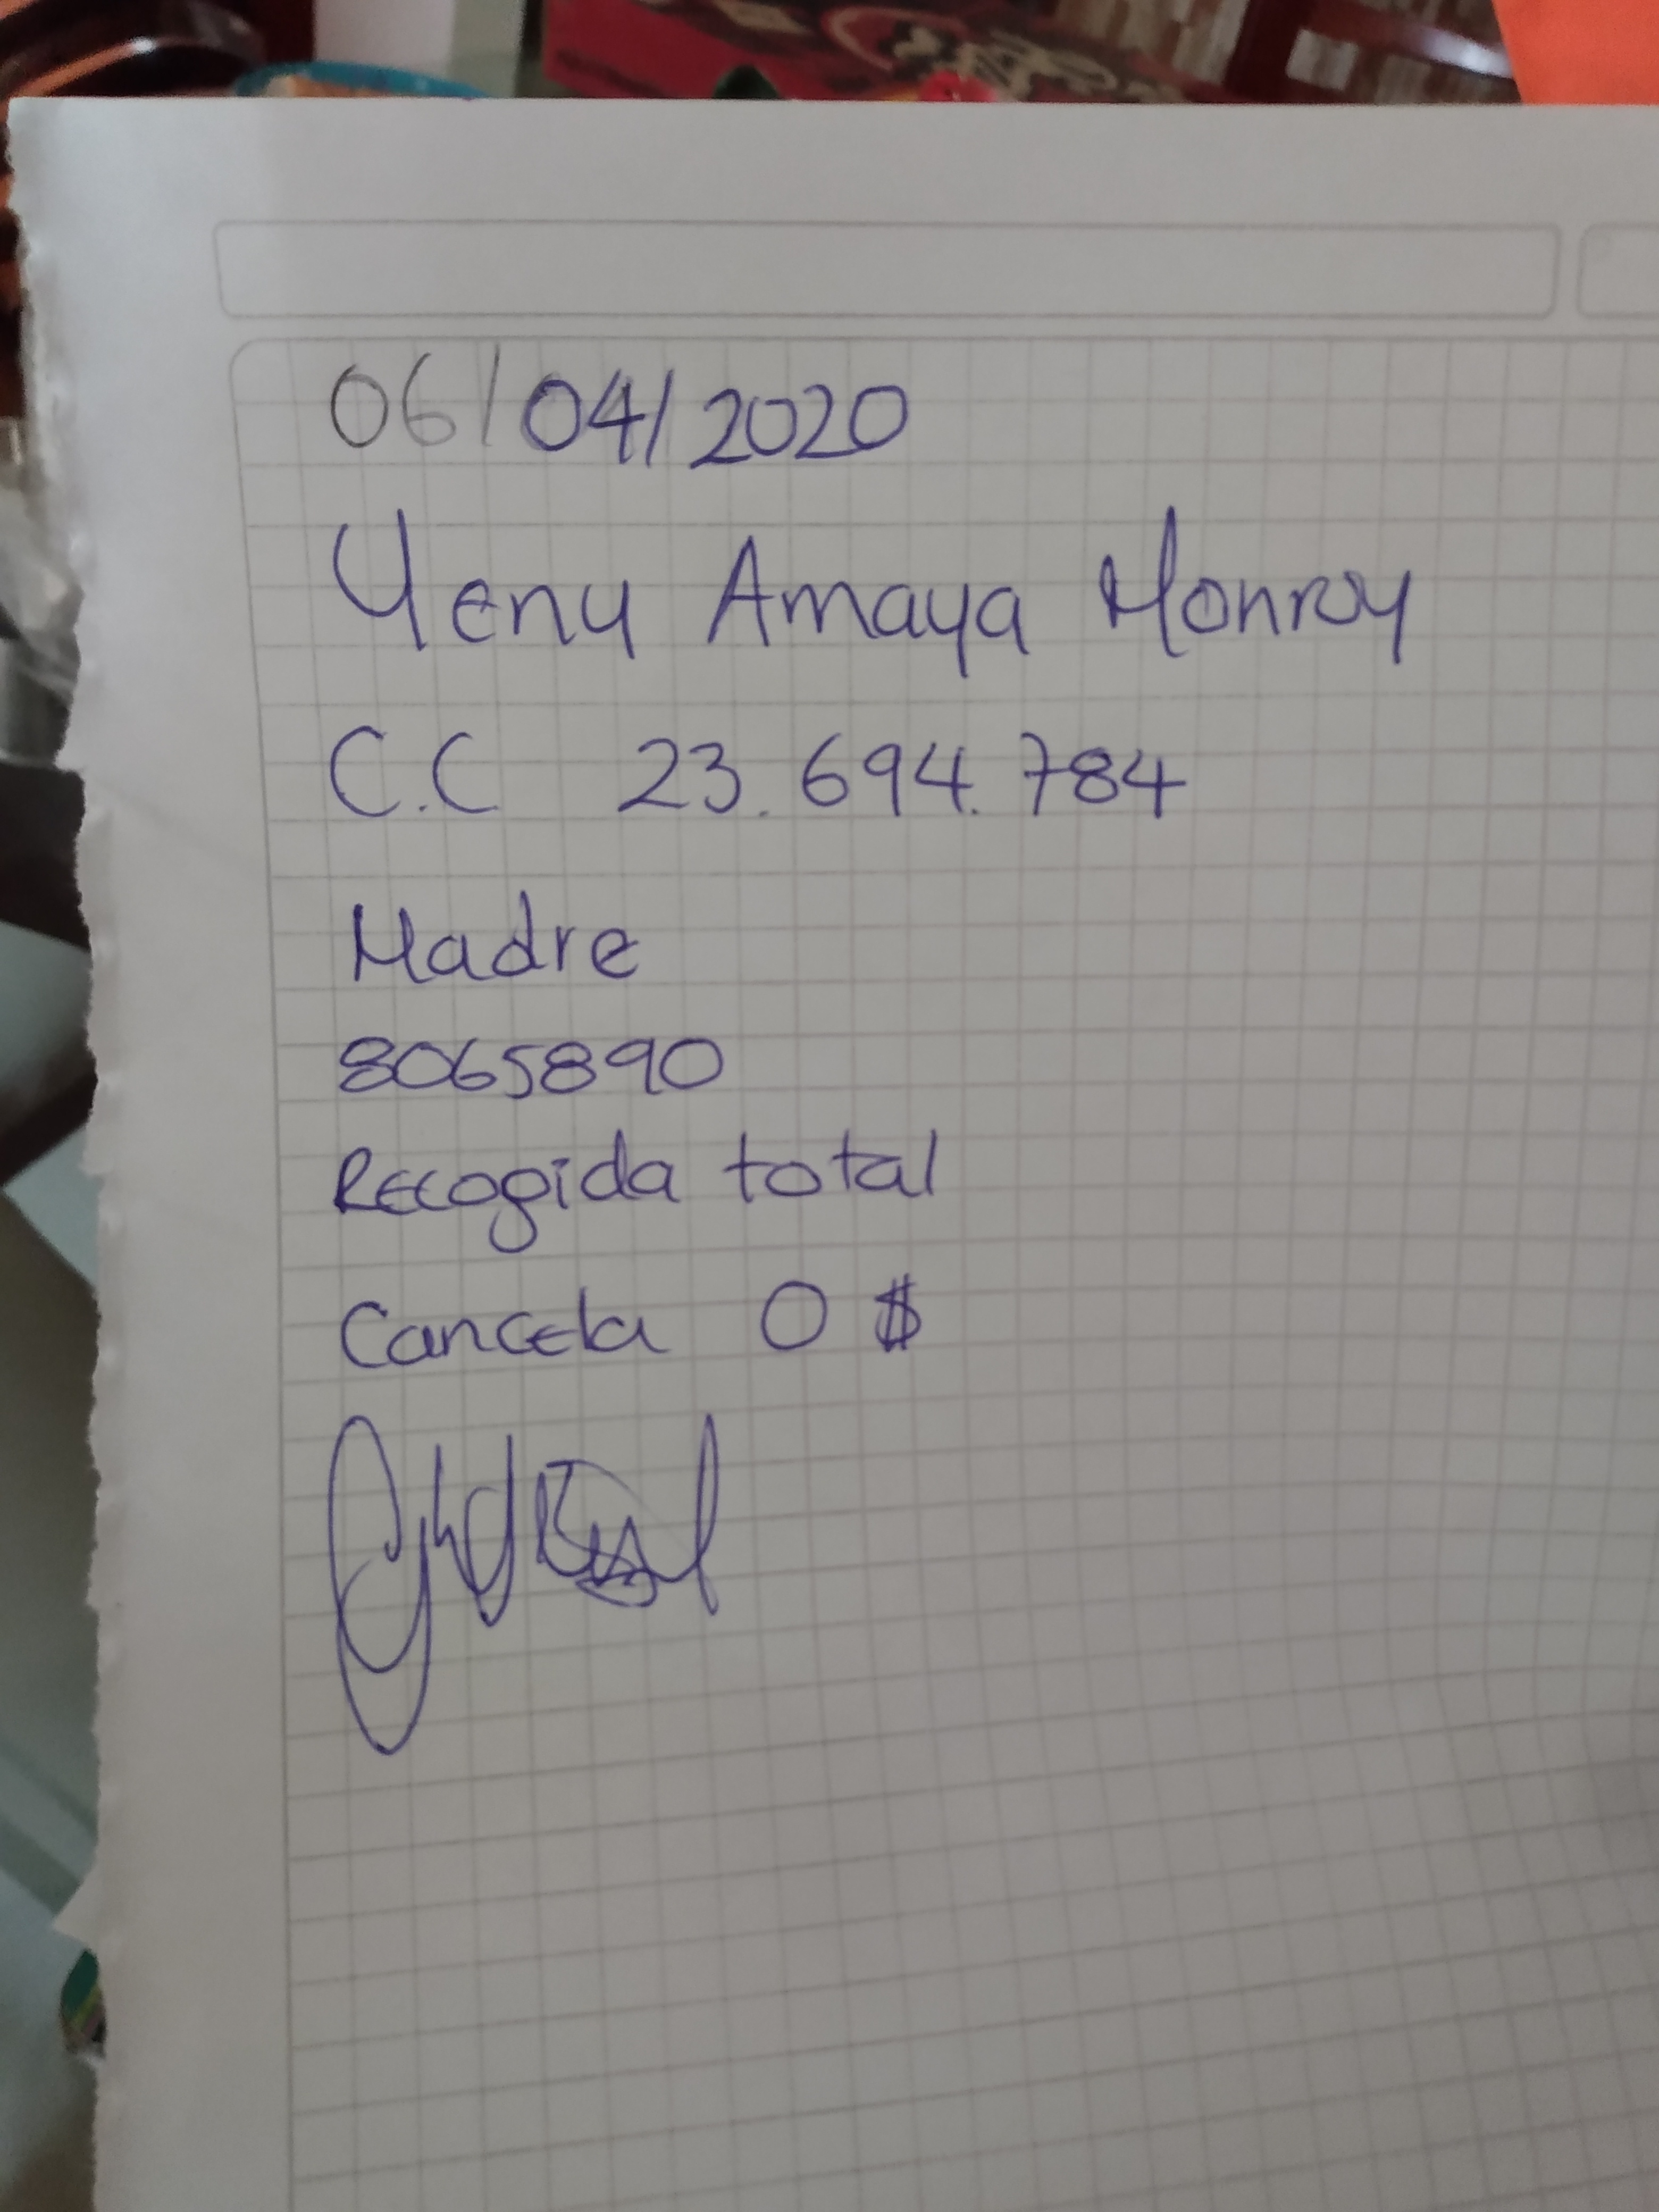 06/04/2020
Yeny Amaya Monroy
C.C 23.694.784
Madre
8065890
Recogida total
Cancela 0 $